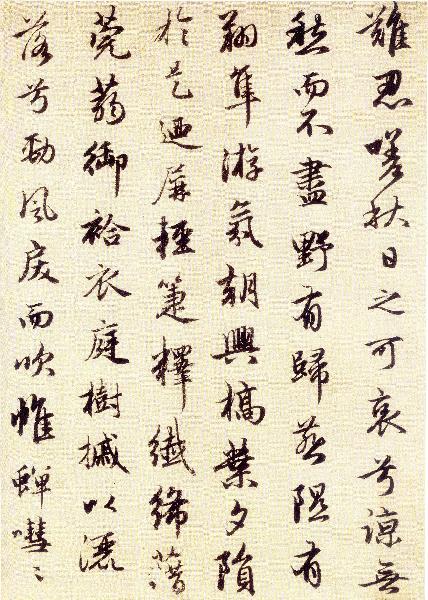 難忍嗟秋日之可哀兮諒無
愁而不盡野有歸燕隰有
翔隼游氛朝興槁葉夕隕
於是迺屏輕箑釋纖絺藉
莞蒻御袷衣庭樹摵以灑
落兮勁風戾而吹帷蟬嘒〻